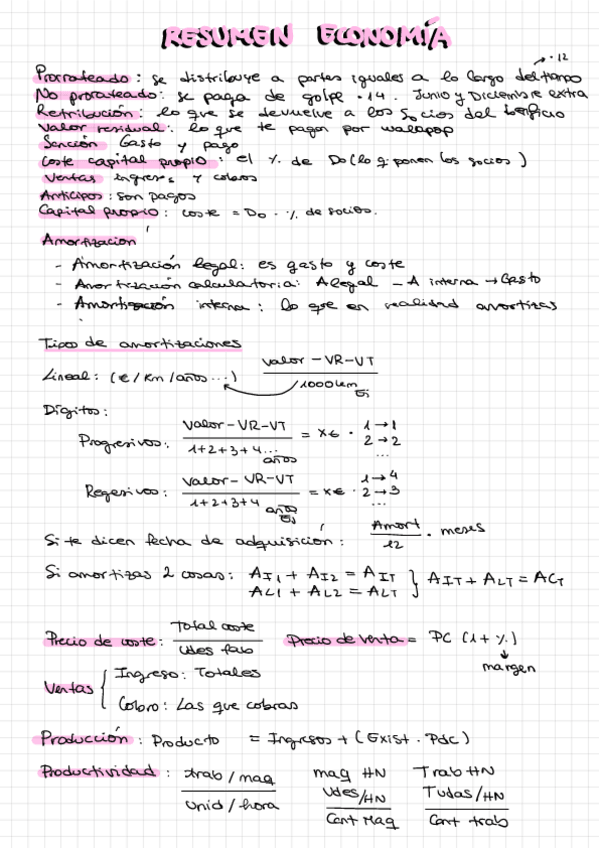 RESUMEN ECONOMÍA
Prorrateado: se distribuye a partes iguales a lo largo del tiempo · 12
No prorateado: se paga de golpe · 14. Junio y Diciembre extra
Retribución: lo que se devuelve a los socios del beneficio
Valor residual: lo que te pagan por walapop
Sanción Gasto y pago
Coste capital propio: el % de Do (lo q ponen los socios)
Ventas ingresos y cobros
Anticipos: son pagos
Capital propio: coste = Do · % de socios.
Amortización
- Amortización legal: es gasto y coste
- Amortización calculatoria: A legal - A interna → Gasto
- Amortización interna: lo que en realidad amortizas
Tipos de amortizaciones
Lineal: (€/km/años...) Valor-VR-VT / 1000km
Ej
Dígitos:
Progresivos: Valor-VR-VT / 1+2+3+4... años = x€ · 1→1 2→2 ...
Regesivos: Valor-VR-VT / 1+2+3+4 años = x€ · 1→4 2→3 ...
Ej
Si te dicen fecha de adquisición: Amort / 12 · meses
Si amortizas 2 cosas: AI1 + AI2 = AIT } AIT + ALT = ACT
AL1 + AL2 = ALT
Precio de coste: Total coste / Udes fab Precio de venta = PC (1+%)
↓
margen
Ventas { Ingreso: Totales
Cobro: Las que cobras
Producción: Producto = Ingresos + (Exist · Pdc)
Productividad: trab/maq maq HN Trab HN
Unid/hora Udes/HN Tudas/HN
Cant Maq Cant trab